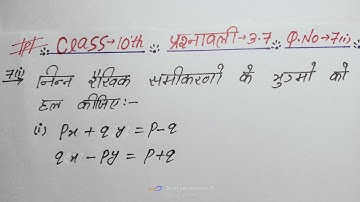 Class → 10th प्रश्नावली → 3.7 Q.No → 7(i)
7(i) → निम्न रैखिक समीकरणो के युग्मो को
हल कीजिए :-
(i) px + qy = p - q
qx - py = p + q